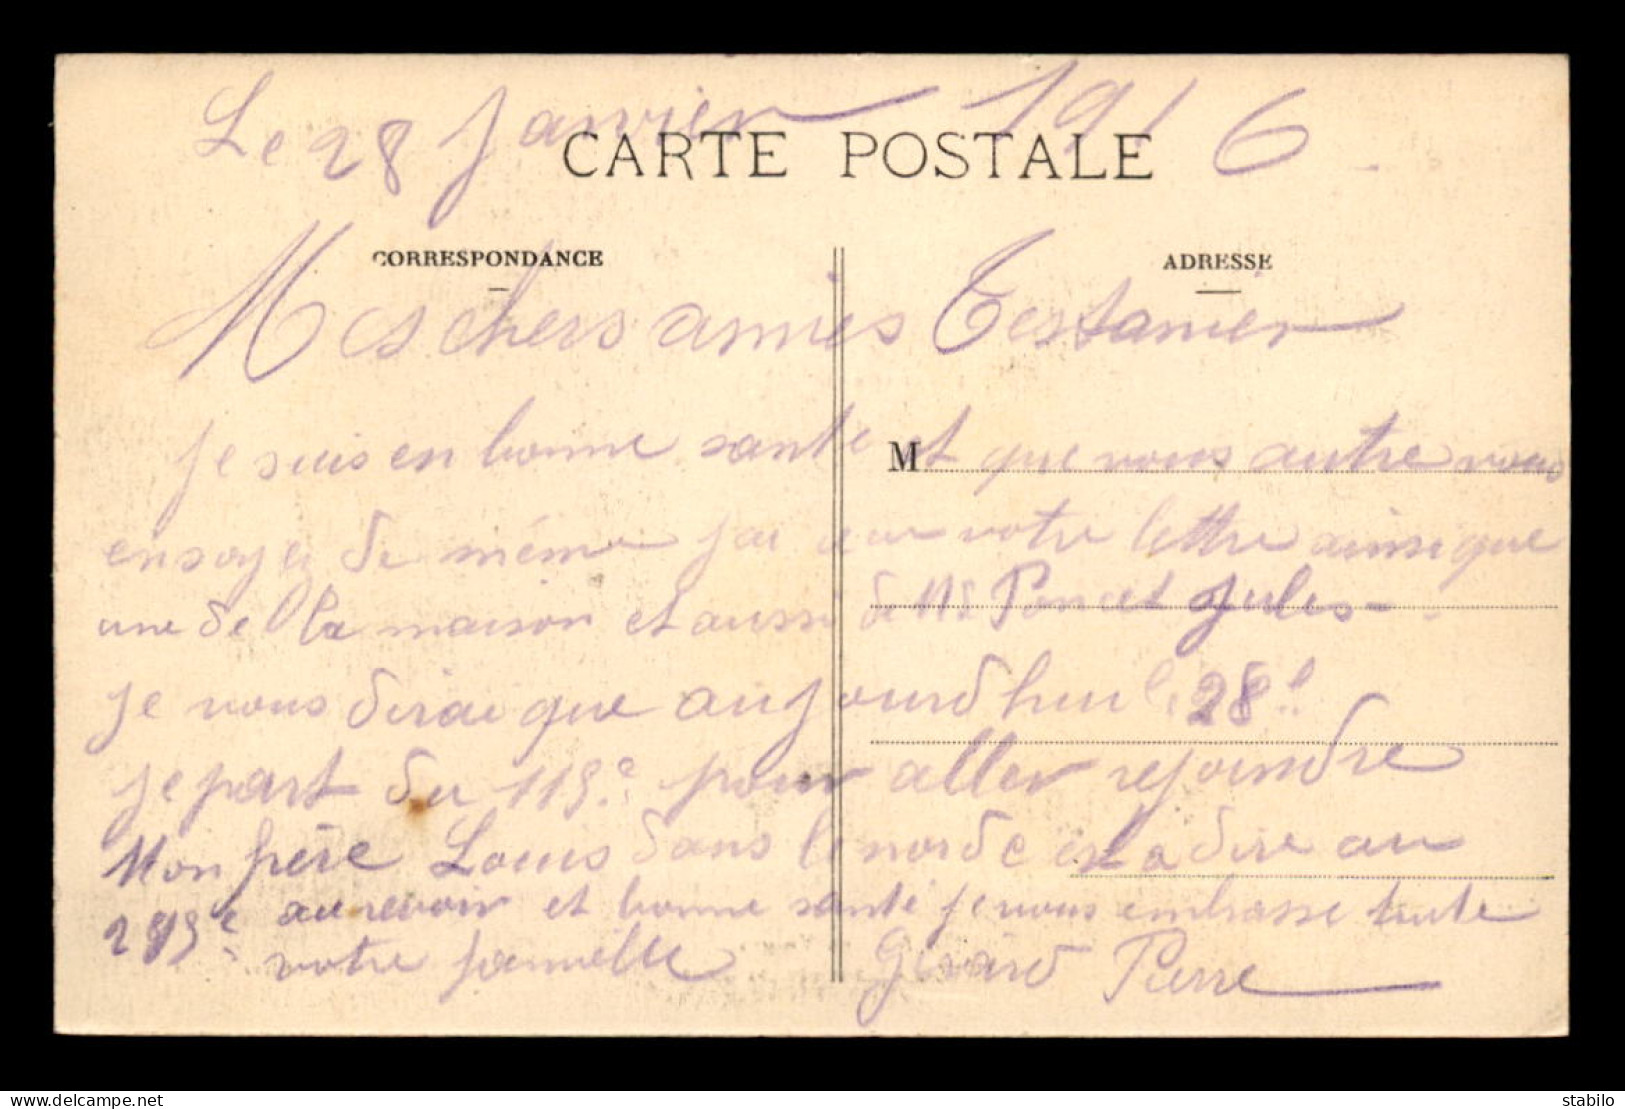 Le 28 Janvier 1916
CARTE POSTALE
CORRESPONDANCE
ADRESSE
Mes chers amies Testanier
je suis en bonne santé et que vous autre vous
M
en soyez de même jai reçue votre lettre ainsi que
une de la maison et aussi de Mr Poncet Jules
je vous dirai que aujourdhui le 28
je part du 115e pour aller rejoindre
Mon frère Louis dans le norde est a dire au
e au revoir et bonne santé je vous embrasse toute
votre famille Girard Pierre
stabilo